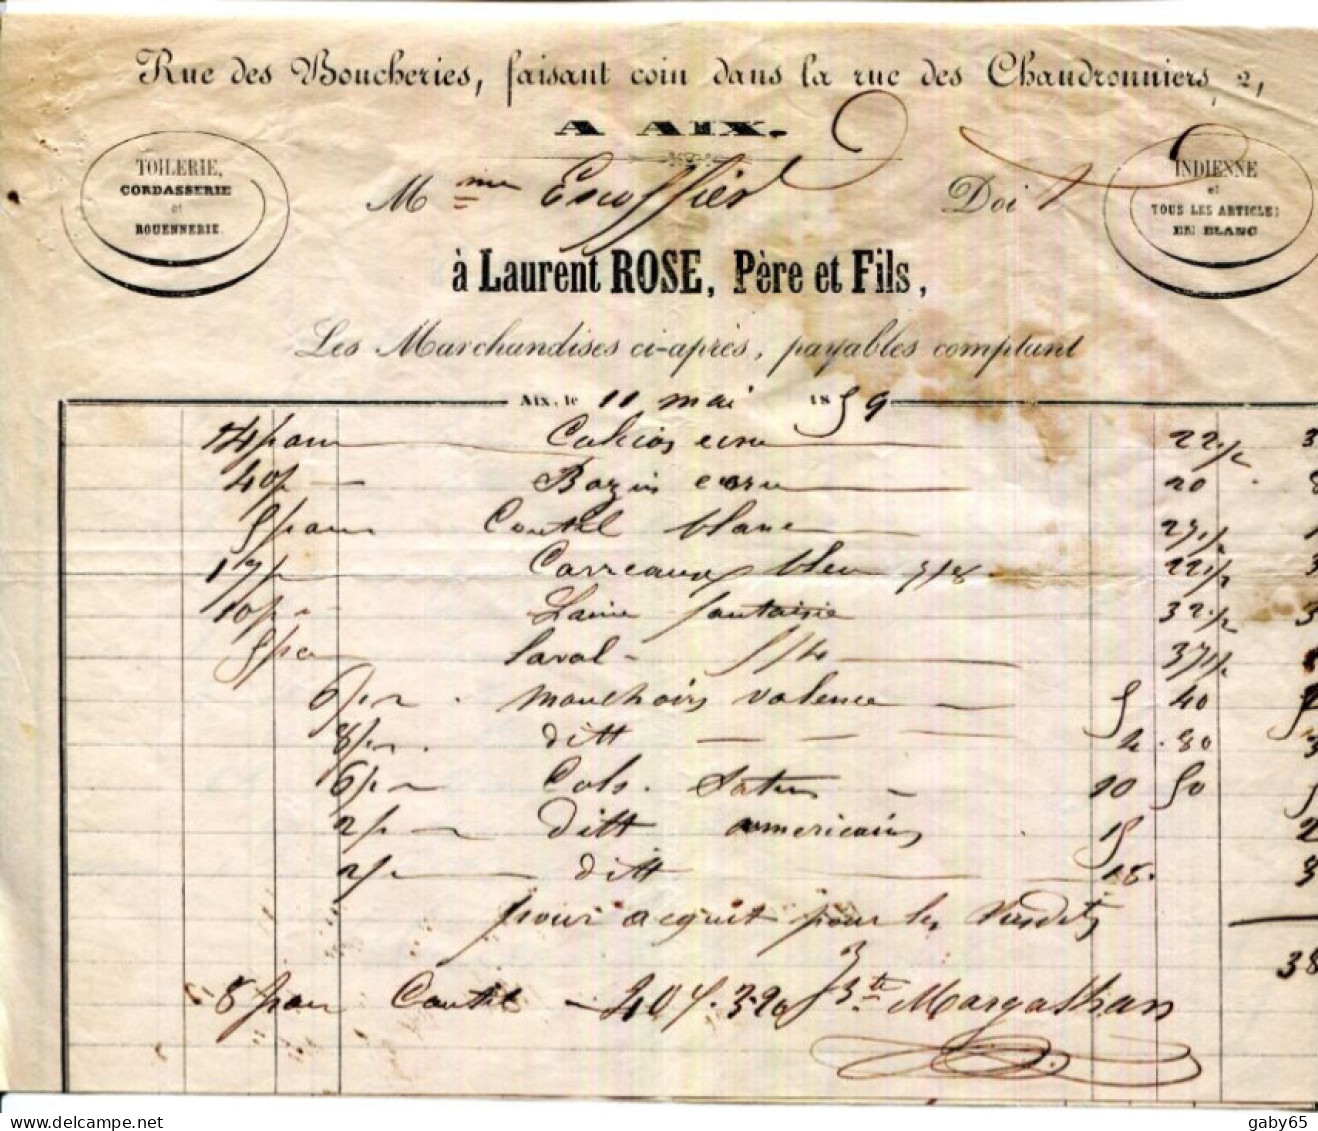 Rue des Boucheries, faisant coin dans la rue des Chaudronniers, 2,
A AIX.
TOILERIE,
CORDASSERIE
et
ROUENNERIE.
INDIENNE
et
TOUS LES ARTICLES
EN BLANC
Mme Escoffier Doit
à Laurent ROSE, Père et Fils,
Les Marchandises ci-après, payables comptant
Aix, le 11 mai 1859
14 pans 22 1/2 3
40 p Bazin 20 8
5 pans Coutil blanc 27 1/2 1
17 p Carreaux bleu 22 1/2 3
10 p Laine fantaisie 32 1/2 3
5 pa Laval 5/4 37 1/2
6 p mouchoirs valence 5 40
8 p ditt 4 80 3
6 p Cols 10 50
2 p ditt americains 15 2
2 p ditt 18 3
pour acquit pour les Susdits
38
8 pan Coutil 40 f 3.20 Margaillan
gaby65